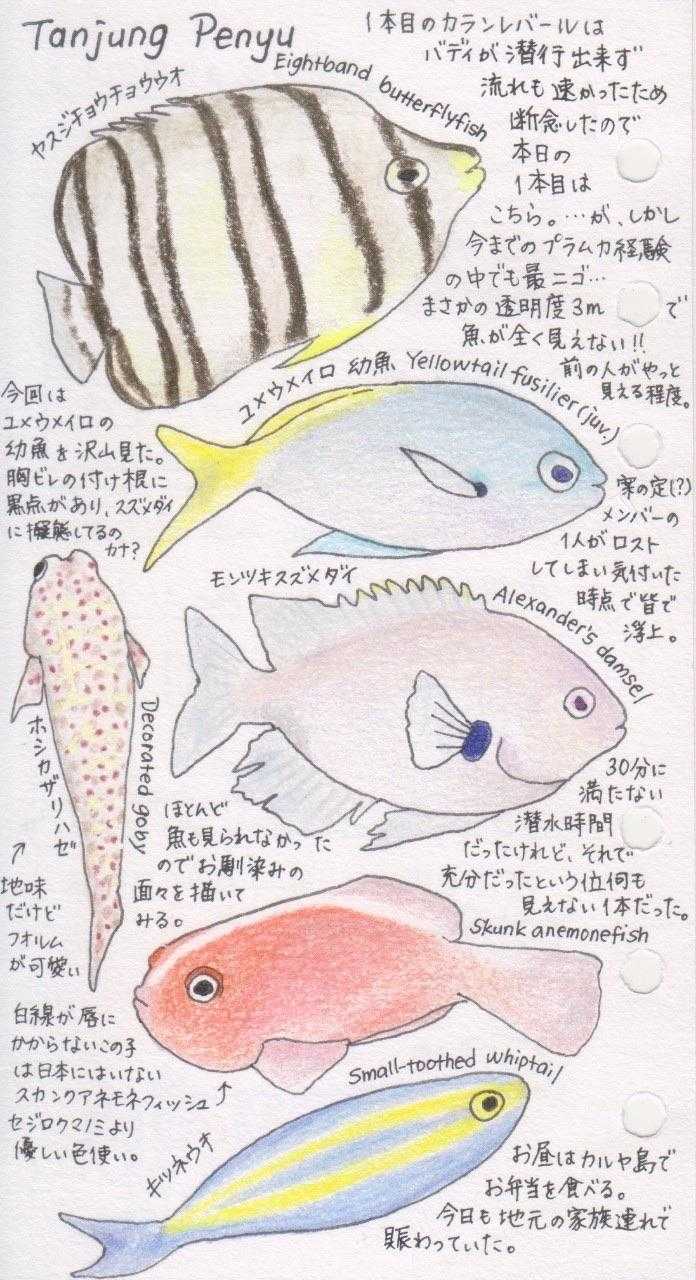 Tanjung Penyu
1本目のカランレバールは
バディが潜行出来ず
流れも速かったため
断念したので
本日の
1本目は
こちら。…が、しかし
今までのプラムカ経験
の中でも最ニゴ…
まさかの透明度3mで
魚が全く見えない!!
前の人がやっと
見える程度。
ヤスジチョウチョウウオ
Eightband butterflyfish
今回は
ユメウメイロの
幼魚を沢山見た。
胸ビレの付け根に
黒点があり、スズメダイ
に擬態してるの
カナ?
ユメウメイロ 幼魚 Yellowtail fusilier (juv.)
案の定(?)
メンバーの
1人がロスト
してしまい気付いた
時点で皆で
浮上。
モンツキスズメダイ
Alexander's damsel
Decorated goby
ホシカザリハゼ
↑
地味
だけど
フォルム
が可愛い
30分に
満たない
潜水時間
だったけれど、それで
充分だったという位何も
見えない1本だった。
ほとんど
魚も見られなかった
のでお馴染みの
面々を描いて
みる。
Skunk anemonefish
白線が唇に
かからないこの子
は日本にはいない
スカンクアネモネフィッシュ↑
セジロクマノミより
優しい色使い。
Small-toothed whiptail
キツネウオ
お昼はカルヤ島で
お弁当を食べる。
今日も地元の家族連れで
賑わっていた。